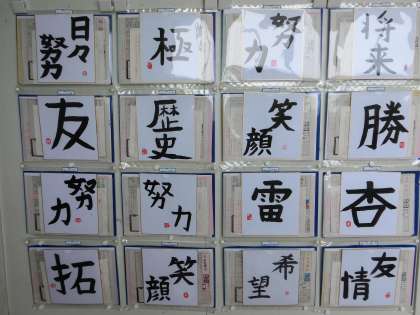 日々
努力
極
努力
将来
友
歴史
笑顔
勝
努力
努力
雷
杏
拓
笑顔
希望
友情